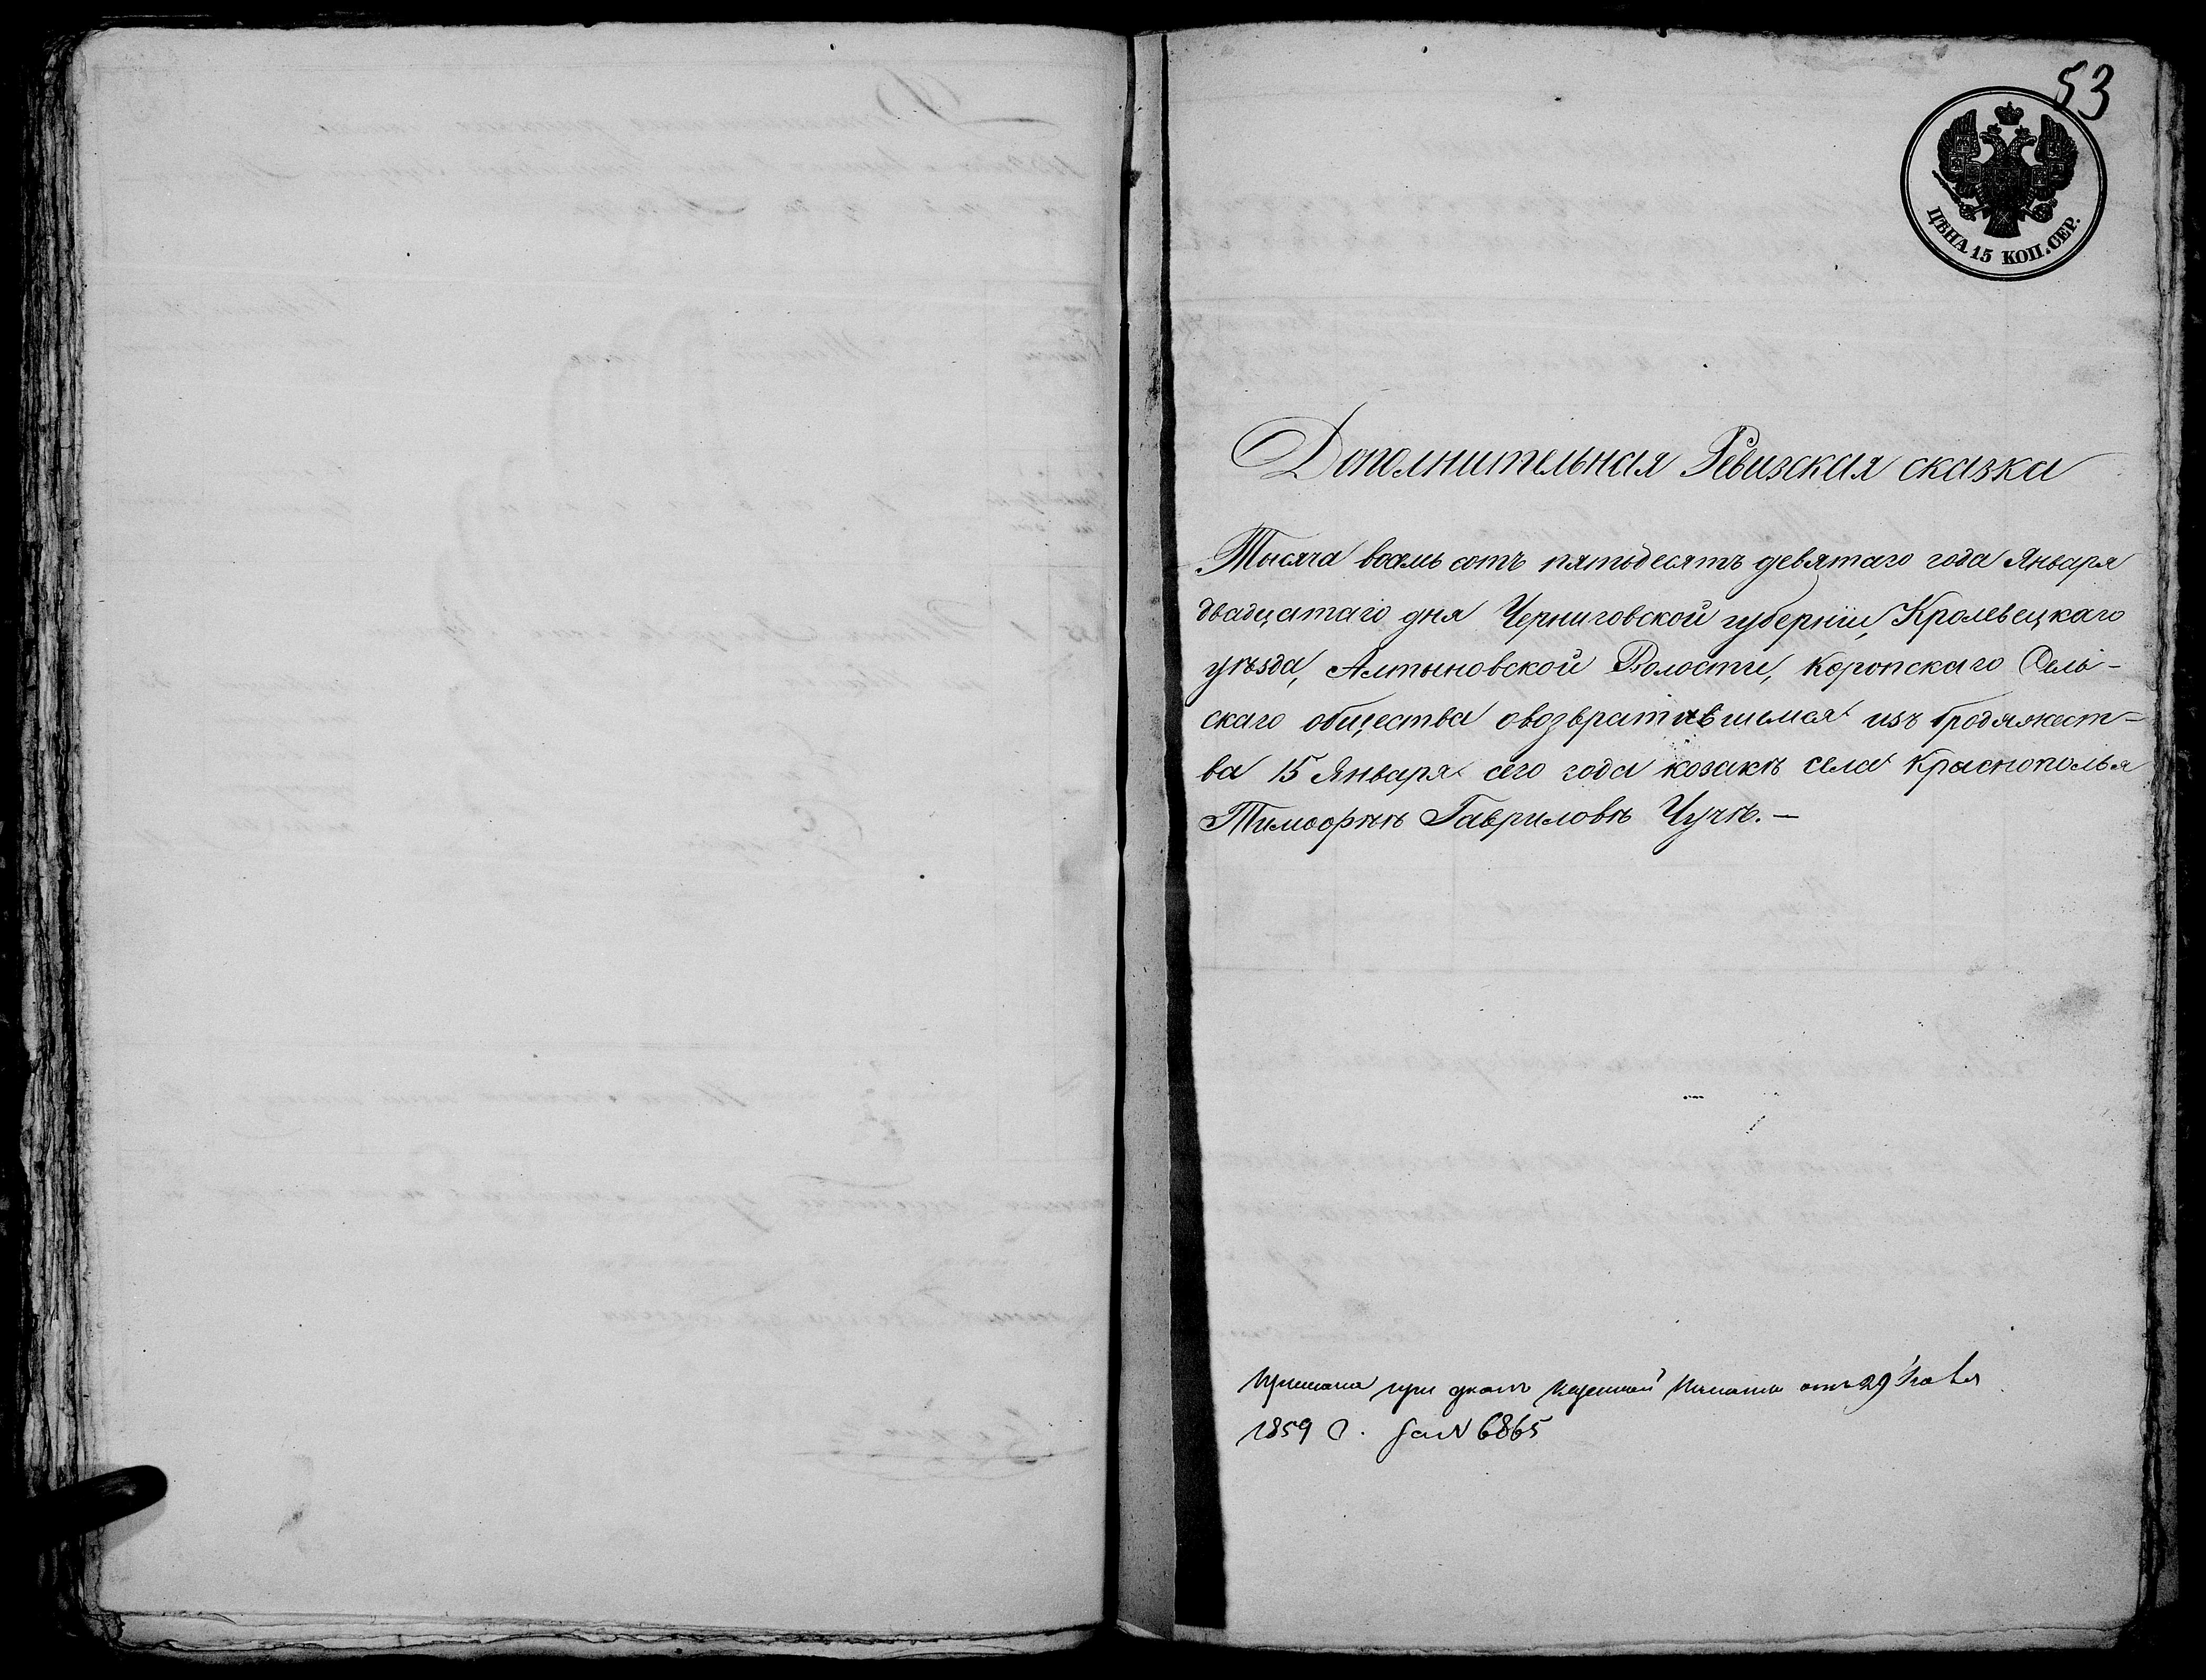 53
ЦѢНА 15 КОП. СЕР.
Дополнительная Ревизская сказка
Тысяча восемь сотъ пятьдесятъ девятаго года Января
двадцатаго дня Черниговской губерніи, Кролевецкаго
уѣзда, Алтыновской Волости, Коропскаго Сель-
скаго общества о возвратившемся изъ бродяжест-
ва 15 Января сего года козакѣ села Краснополья
Тимофѣѣ Гавриловѣ Чучѣ. —
при указѣ Казенной Палаты отъ 29
1859 г. за N 6865